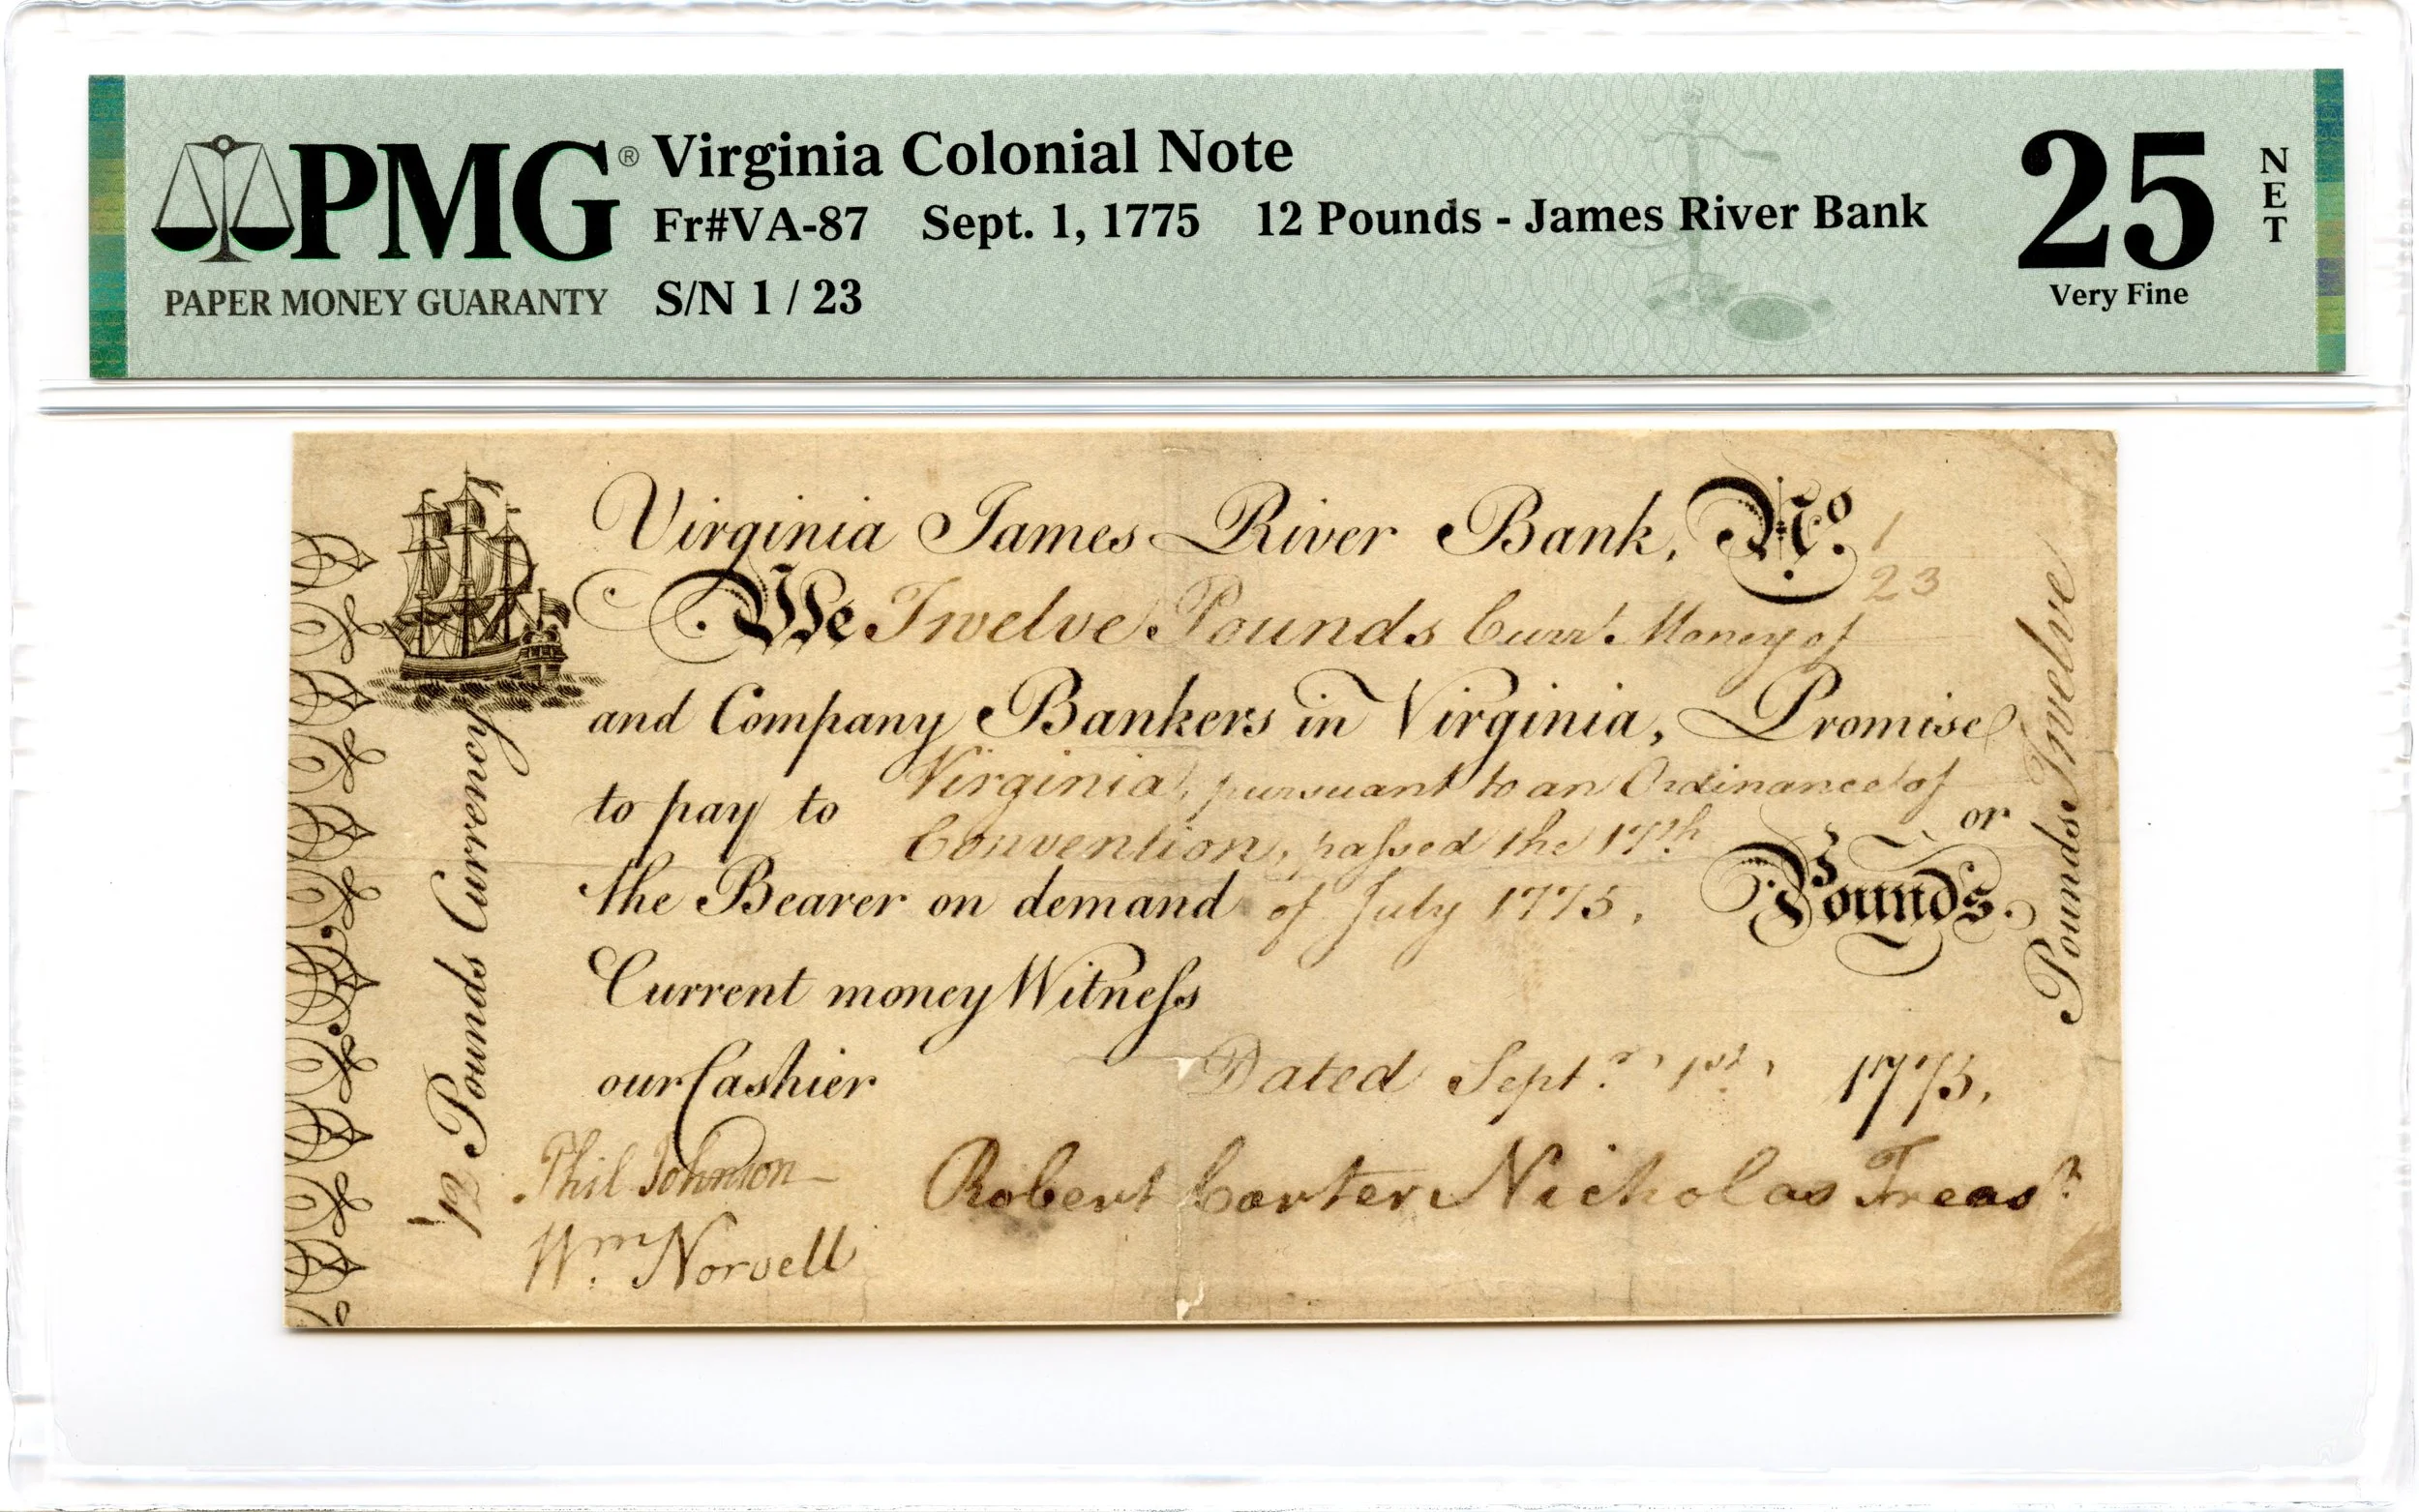 PMG®
PAPER MONEY GUARANTY
Virginia Colonial Note
Fr#VA-87 Sept. 1, 1775 12 Pounds - James River Bank
S/N 1 / 23
25
NET
Very Fine
Virginia James River Bank, No. 1
23
We Twelve Pounds Currt. Money of
and Company Bankers in Virginia, Promise
Virginia, pursuant to an Ordinance of
to pay to
or
Convention, paſsed the 17th
the Bearer on demand of July 1775, Pounds.
Current money Witneſs
our Cashier Dated Septr. 1st, 1775,
Phil Johnson
Robert Carter Nicholas Treasr.
Wm. Norvell
12 Pounds Currency
Pounds Twelve